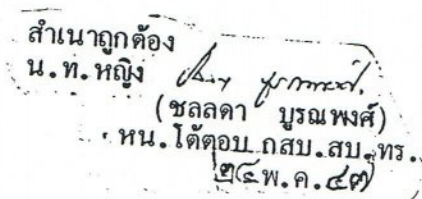 สำเนาถูกต้อง
น.ท.หญิง
(ชลลดา บูรณพงศ์)
หน.โต้ตอบ กสบ.สบ.ทร.
๒๔ พ.ค. ๔๗